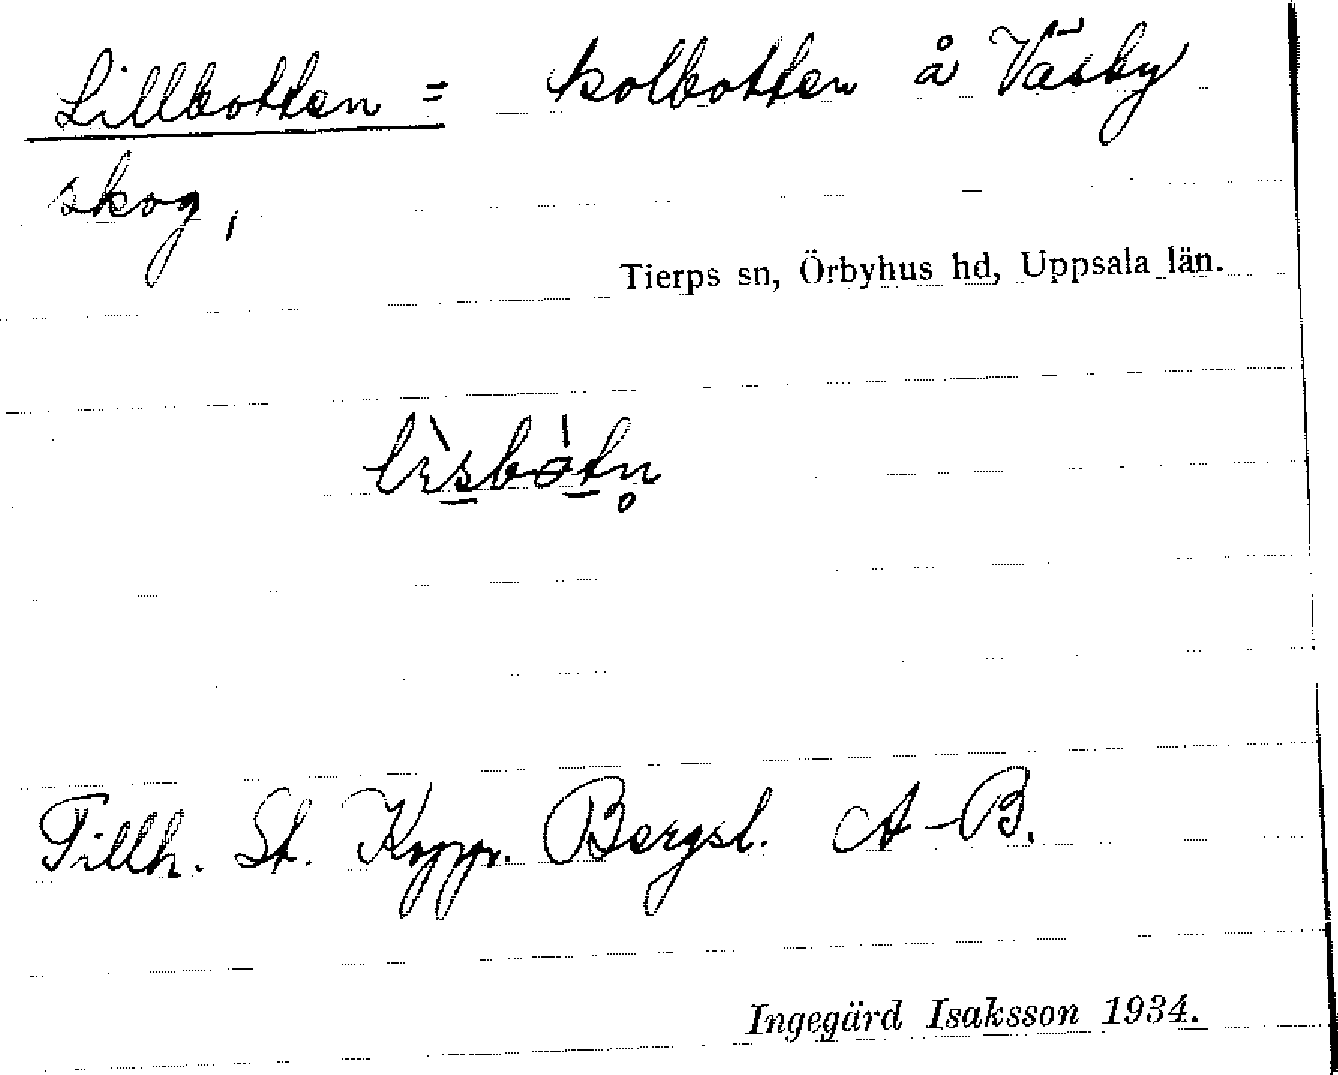 Lillbotten = kolbotten å Väsby
skog,
Tierps sn, Örbyhus hd, Uppsala län.
Tillh. St. Kopp. Bergsl. A-B.
Ingegärd Isaksson 1934.